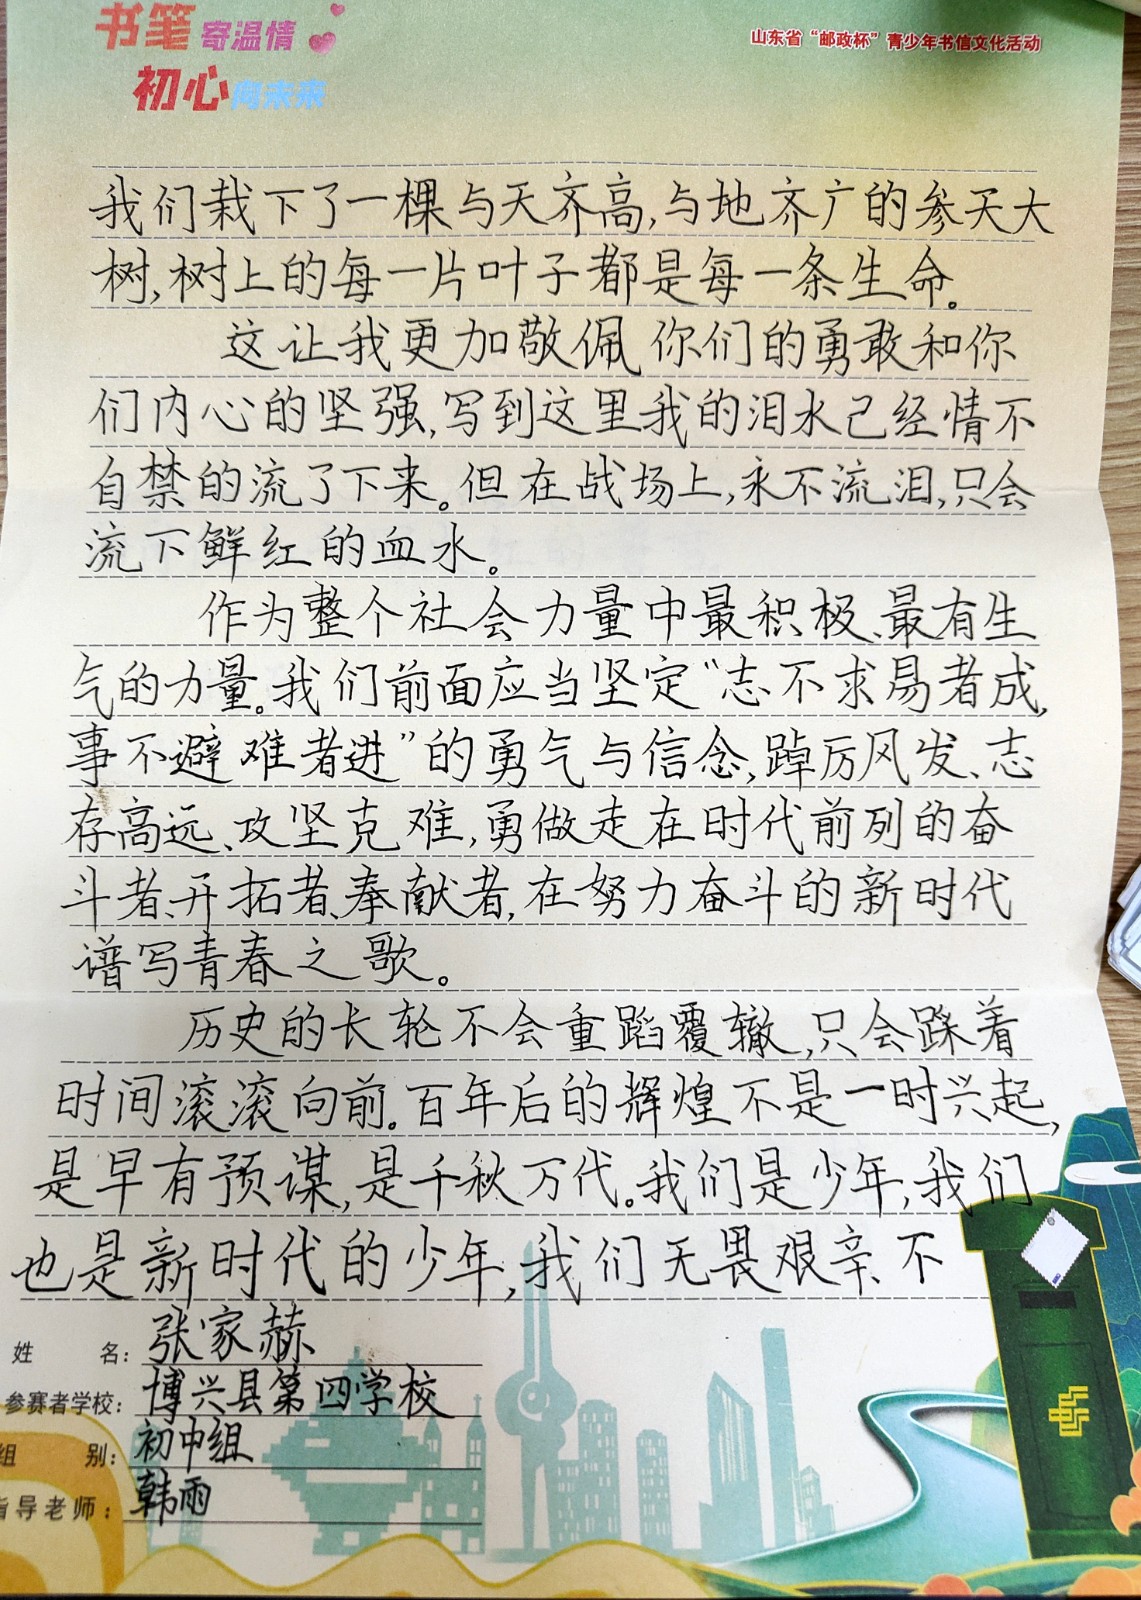 书笔寄温情
初心向未来
山东省“邮政杯”青少年书信文化活动
我们栽下了一棵与天齐高,与地齐广的参天大
树,树上的每一片叶子都是每一条生命。
这让我更加敬佩你们的勇敢和你
们内心的坚强,写到这里我的泪水己经情不
自禁的流了下来。但在战场上,永不流泪,只会
流下鲜红的血水。
作为整个社会力量中最积极、最有生
气的力量。我们前面应当坚定“志不求易者成,
事不避难者进”的勇气与信念,踔厉风发、志
存高远、攻坚克难,勇做走在时代前列的奋
斗者、开拓者、奉献者,在努力奋斗的新时代
谱写青春之歌。
历史的长轮不会重蹈覆辙,只会踩着
时间滚滚向前。百年后的辉煌不是一时兴起,
是早有预谋,是千秋万代。我们是少年,我们
也是新时代的少年,我们无畏艰辛、不
姓名：张家赫
参赛者学校：博兴县第四学校
组别：初中组
指导老师：韩雨